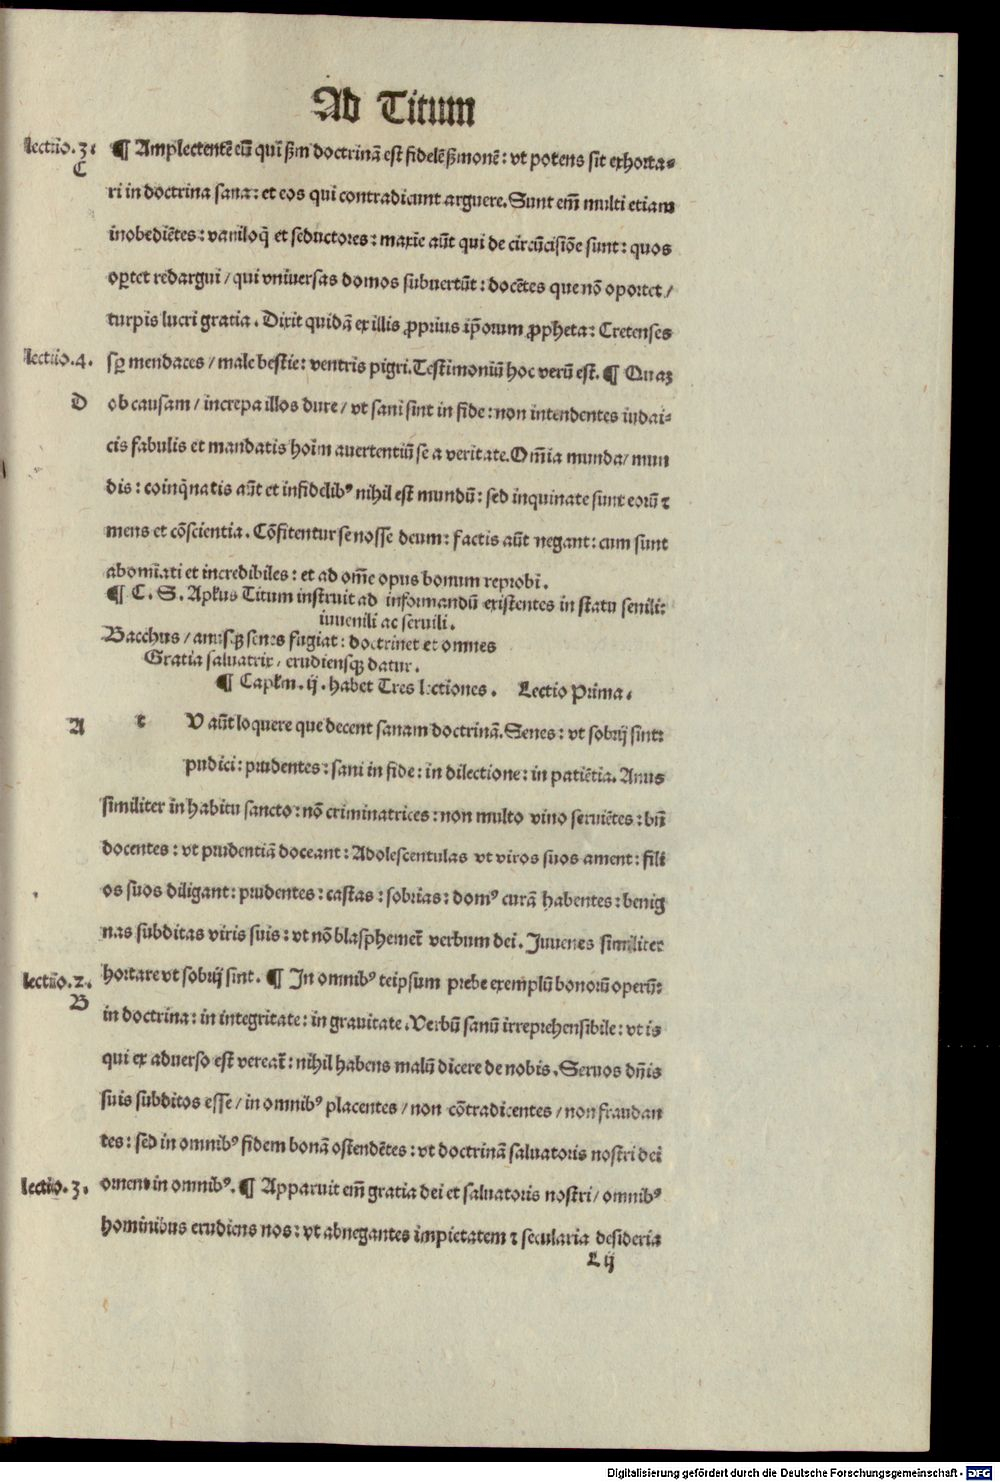 Ad Titum
lectiio.3. ¶ Amplectentē eū qui ẞm doctrinā est fidelē ẞmonē: vt potens sit exhorta⸗
C
ri in doctrina sana: et eos qui contradicunt arguere. Sunt em̄ multi etiam
inobediētes: vaniloq̄ et seductores: maxīe aūt qui de circūcisiōe sunt: quos
oꝑtet redargui / qui vniuersas domos subuertūt: docētes que nō oportet /
turpis lucri gratia. Dixit quidā ex illis ꝓprius ip̄orum ꝓpheta: Cretenses
lectiio.4. sꝑ mendaces / male bestie: ventris pigri. Testimoniū hoc verū est. ¶ Quaꝫ
D ob causam / increpa illos dure / vt sani sint in fide: non intendentes iudai⸗
cis fabulis et mandatis hoīm auertentiū se a veritate. Om̄ia munda / mun
dis: coinq̄natis aūt et infidelibꝰ nihil est mundū: sed inquinate sunt eorū ⁊
mens et cōscientia. Cōfitentur se nosse deum: factis aūt negant: cum sunt
abomīati et incredibiles: et ad om̄e opus bonum reprobi.
¶ C. S. Apłus Titum instruit ad informandū existentes in statu senili:
iuuenili ac seruili.
Bacchus / anusqꝫ senes fugiat: doctrinet et omnes
Gratia saluatrix, erudiensqꝫ datur.
¶ Capłm. ij. habet Tres lectiones. Lectio Prima.
A t V aūt loquere que decent sanam doctrinā. Senes: vt sobrij sint:
pudici: prudentes: sani in fide: in dilectione: in patiētia. Anus
similiter in habitu sancto: nō criminatrices: non multo vino seruiētes: bn̄
docentes: vt prudentiā doceant: Adolescentulas vt viros suos ament: fili
os suos diligant: prudentes: castas: sobrias: domꝰ curā habentes: benig
nas subditas viris suis: vt nō blasphemet̄ verbum dei. Juuenes similiter
lectiio.2. hortare vt sobrij sint. ¶ In omnibꝰ teipsum prebe exemplū bonorū operū:
B
in doctrina: in integritate: in grauitate. Verbū sanū irreprehensibile: vt is
qui ex aduerso est vereat̄: nihil habens malū dicere de nobis. Seruos dn̄is
suis subditos esse / in omnibꝰ placentes / non cōtradicentes / non fraudan
tes: sed in omnibꝰ fidem bonā ostendētes: vt doctrinā saluatoris nostri dei
lectio.3. ornent in omnibꝰ. ¶ Apparuit em̄ gratia dei et saluatoris nostri / omnibꝰ
hominibus erudiens nos: vt abnegantes impietatem ⁊ secularia desideria
L ij
Digitalisierung gefördert durch die Deutsche Forschungsgemeinschaft - DFG